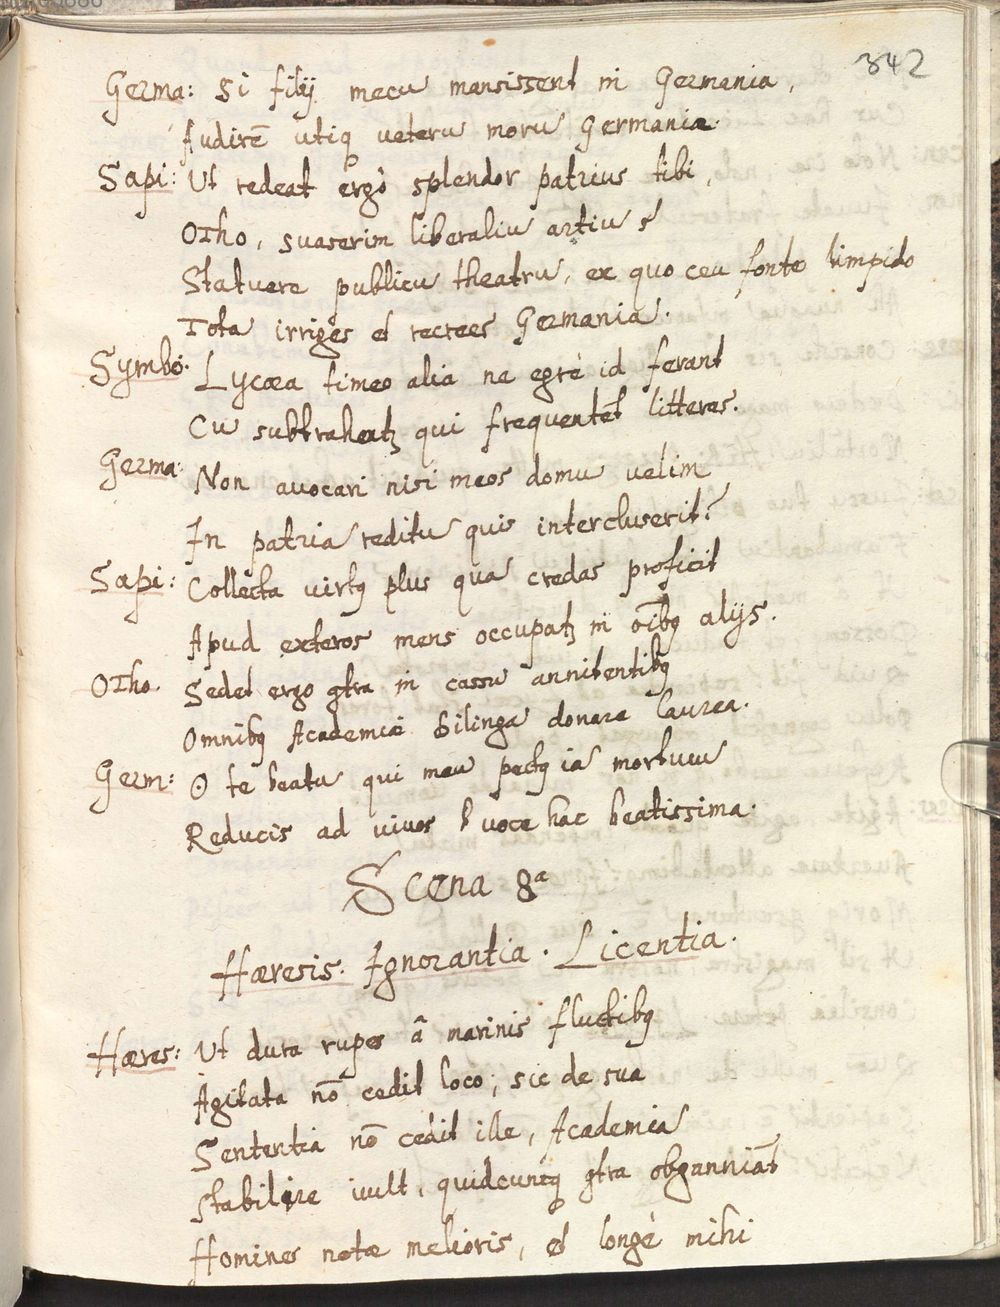 342
Germa: Si filij mecū mansissent in Germania,
Audirē utiq ueterū morū Germania.
Sapi: Ut redeat ergò splendor patrius tibi,
Otho, suaserim liberaliū artiū
Statuere publicū theatrū, ex quo ceu fonte limpido
Tota irriges et recrees Germaniā.
Symbo: Lycæa timeo alia ne egrè id ferant
Cū subtrahentꝫ qui frequentēt litteras.
Germa: Non auocari nisi meos domū uelim,
In patriā reditū quis intercluserit?
Sapi: Collecta uirtꝯ plus quā credas proficit
Apud exteros mens occupatꝫ in oībꝯ alijs.
Otho Sedet ergo ꝯtra in cassū annitentibꝯ
Omnibꝯ Academiæ Silingā donare laureā.
Germ: O te beatū qui meū pectꝯ iā mortuū
Reducis ad viuos voce hac beatissima.
Scena 8ª
Hæresis. Ignorantia. Licentia.
Hæres: Ut dura rupes â marinis fluctibꝯ
Agitata nō cedit loco, sic de sua
Sententia nō cedit ille, Academiā
Stabilire uult, quidcunq ꝯtra obganniāt
Homines notæ melioris, et longè mihi